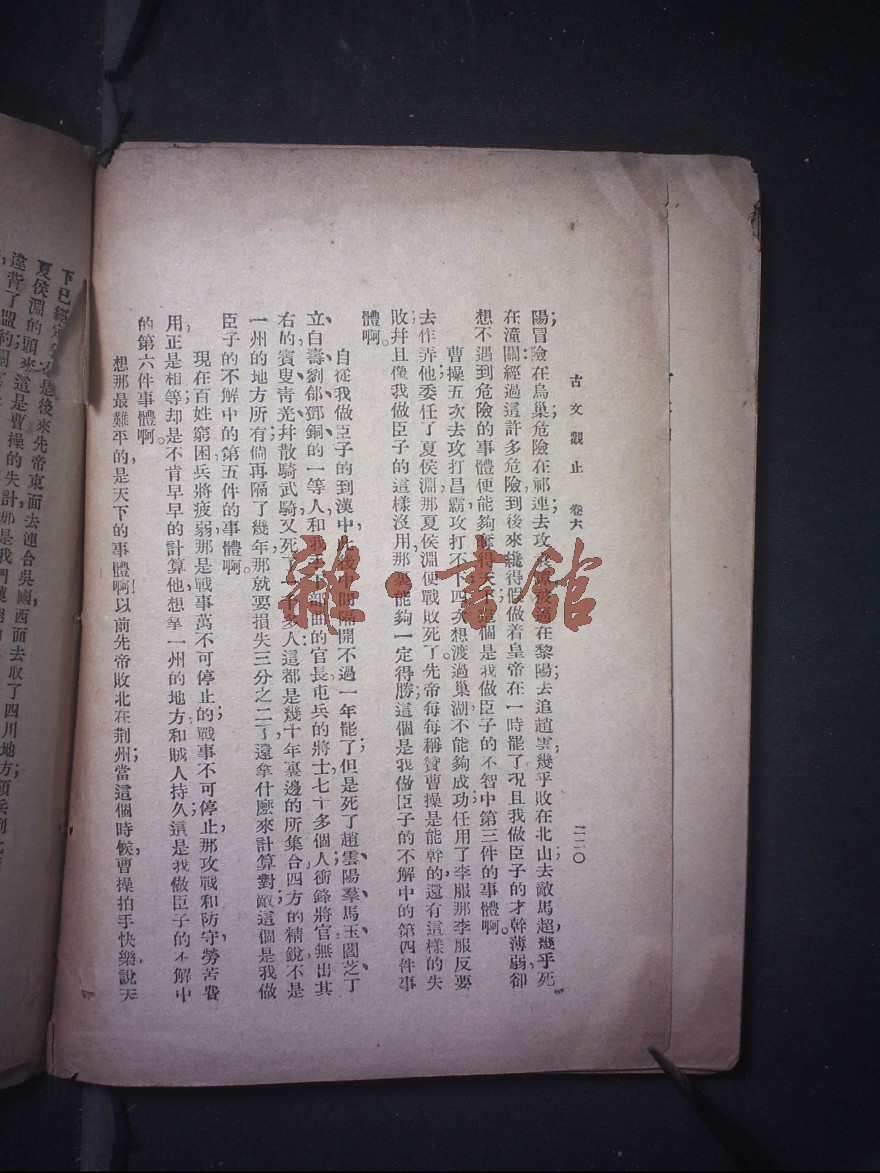 古文觀止 卷六
二二〇
陽;冒險在烏巢,危險在祁連;去攻在黎陽;去追趙雲,幾乎敗在北山;去敵馬超,幾乎死
在潼關:經過這許多危險,到後來纔得假做着皇帝在一時罷了。況且我做臣子的才幹薄弱,卻
想不遇到危險的事體,便能夠得個是我做臣子的不智中第三件的事體啊。
曹操五次去攻打昌霸,攻打不下;四次想渡過巢湖,不能夠成功;任用了李服,那李服反要
去作弄他;委任了夏侯淵,那夏侯淵便戰敗死了。先帝每每稱贊曹操是能幹的,還有這樣的失
敗;幷且像我做臣子的這樣沒用,那能夠一定得勝;這個是我做臣子的不解中的第四件事
體啊。
自從我做臣子的到漢中,中間隔開不過一年罷了;但是死了趙雲、陽羣、馬玉、閻芝、丁
立、白壽、劉郃、鄧銅的一等人,和部曲的官長,屯兵的將士七十多個人;衝鋒將官無出其
右的賨叟、靑羌,幷散騎武騎,又死了多人:這都是幾十年裏邊的所集合四方的精銳,不是
一州的地方所有;倘再隔了幾年,那就要損失三分之二了,還拿什麼來計算對敵;這個是我做
臣子的不解中的第五件的事體啊。
現在百姓窮困,兵將疲弱,那是戰事萬不可停止的;戰事不可停止,那攻戰和防守,勞苦費
用,正是相等;却是不肯早早的計算他,想拿一州的地方和賊人持久;這是我做臣子的不解中
的第六件事體啊。
想那最難平的,是天下的事體啊!以前先帝敗北在荆州,當這個時候,曹操拍手快樂,說天
下已經是後來先帝東面去連合吳國,西面去取了四川地方,
夏侯淵的頭來;這是曹操的失計,那是我們
違背了盟約,